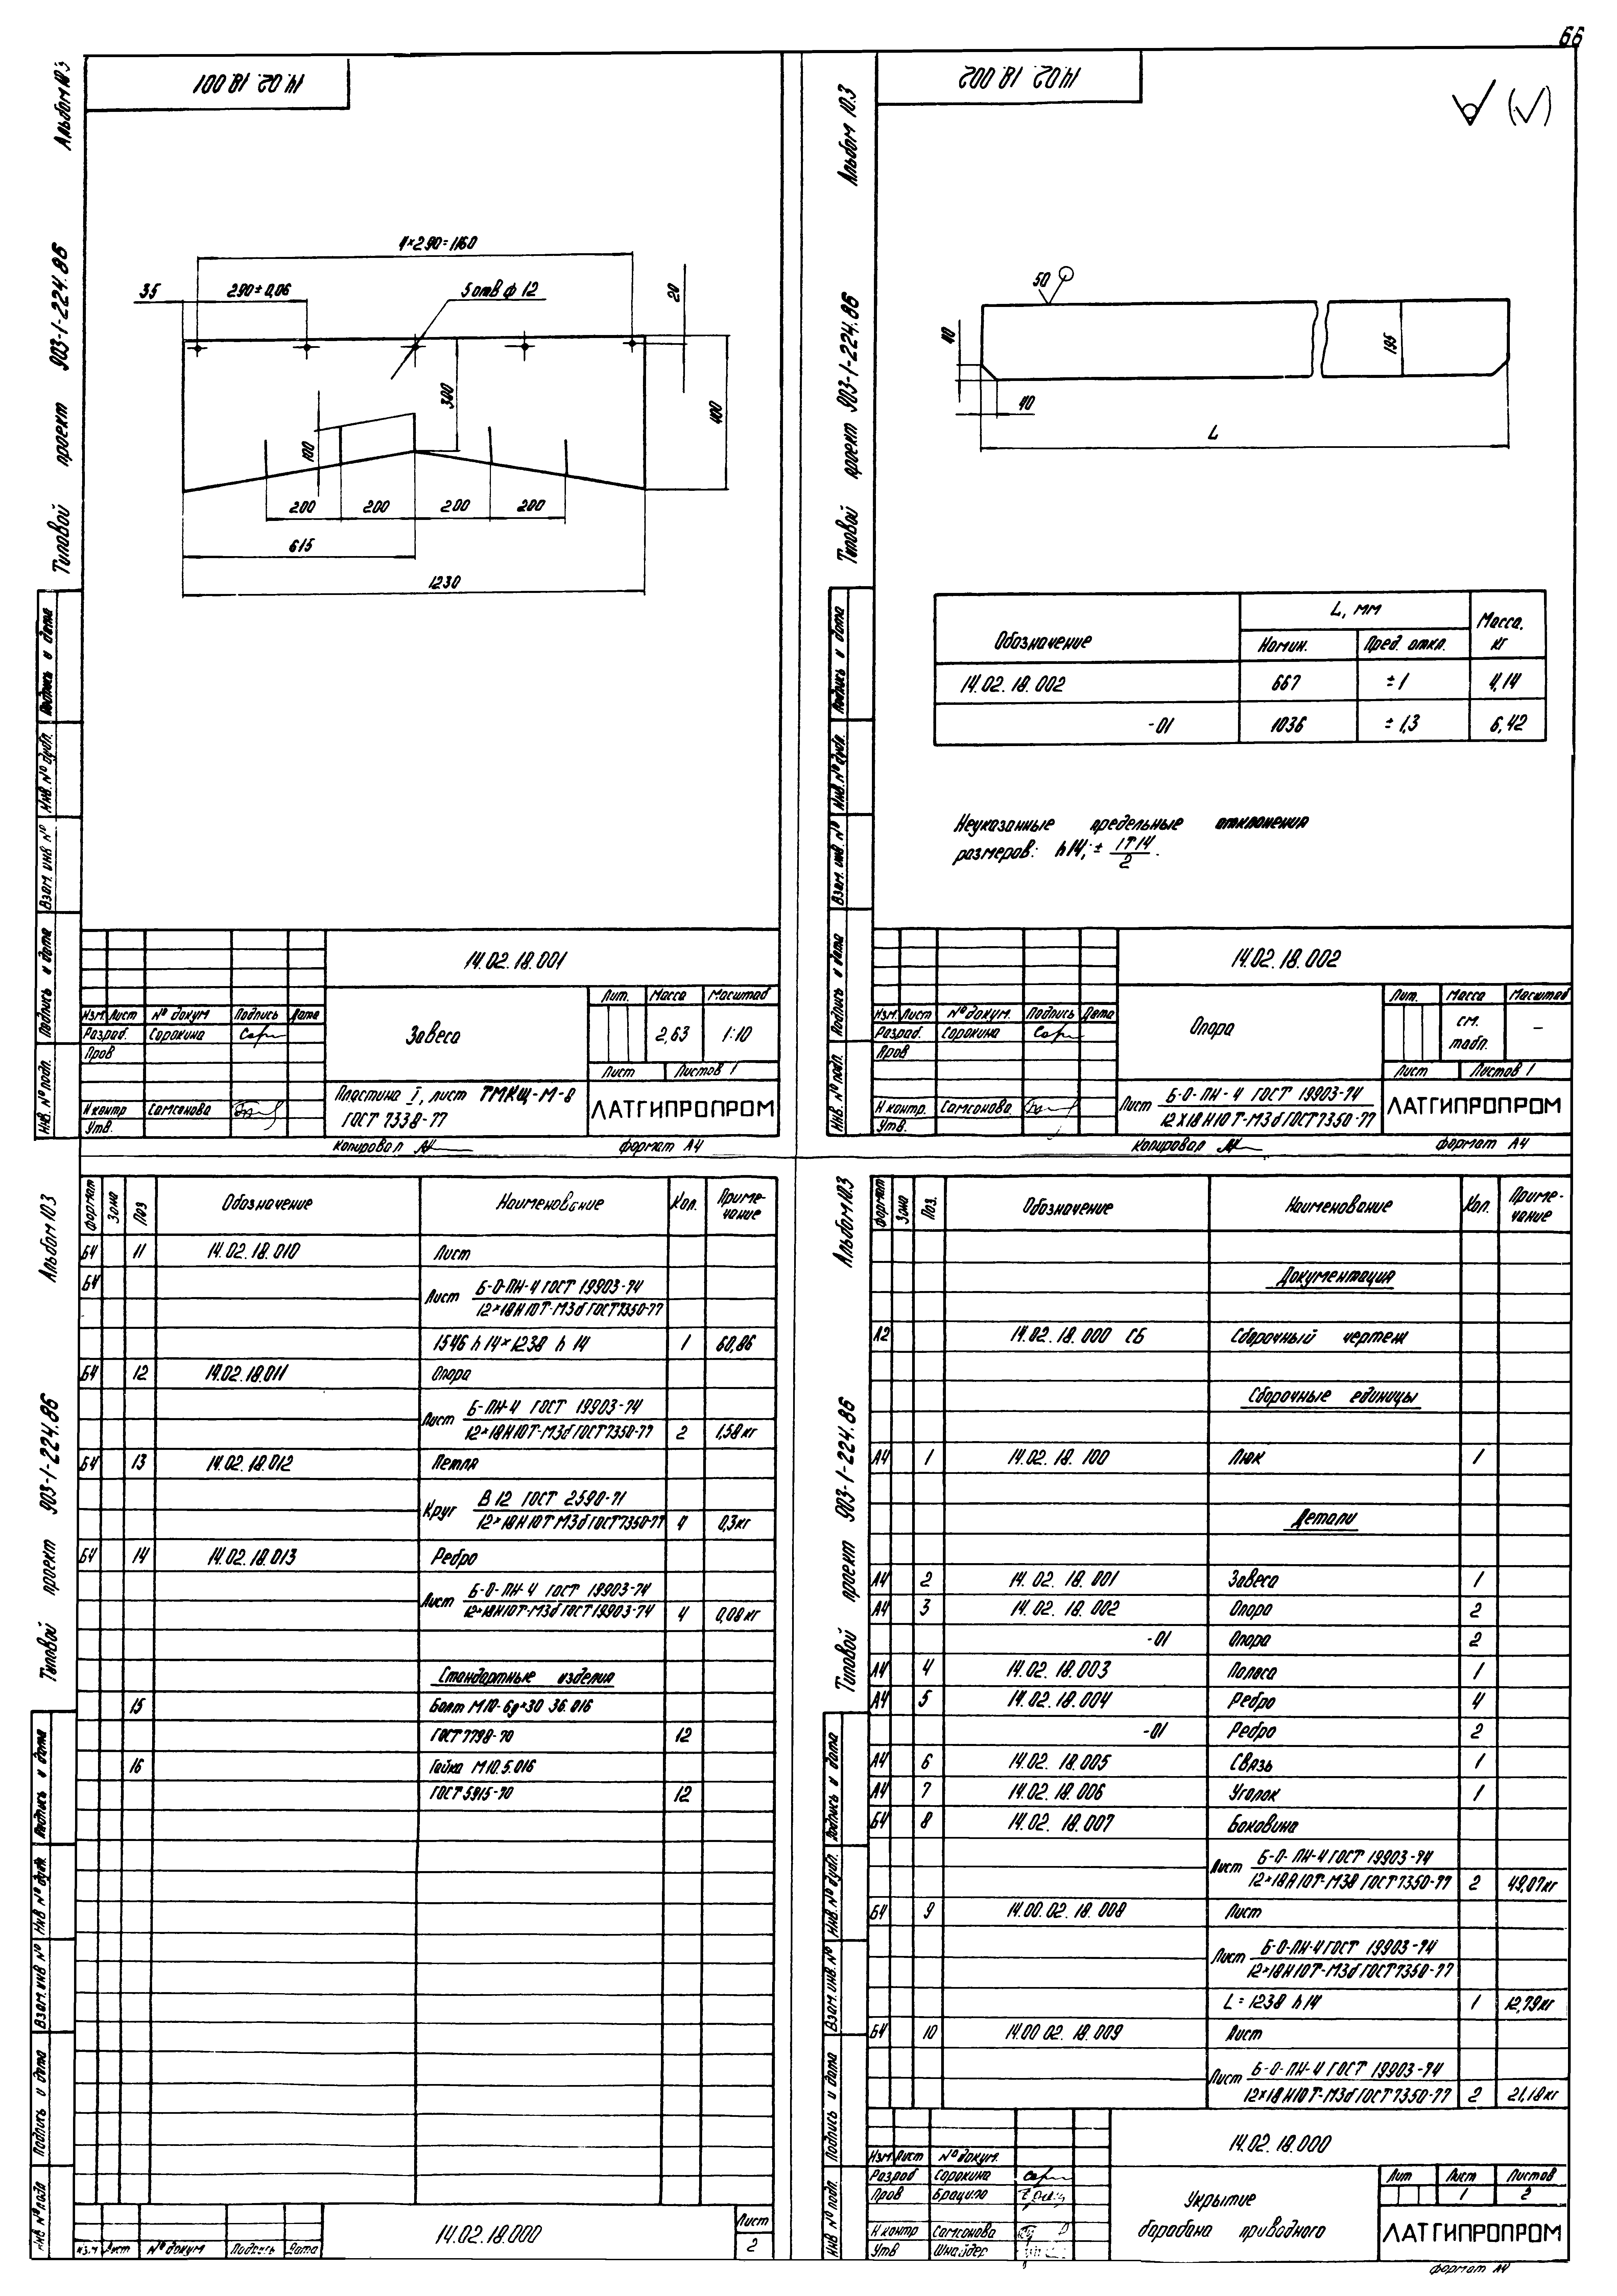 66
14.02.18.001
Альбом 10.3
Типовой проект 903-1-224.86
4×290=1160
35
290±0,06
5 отв ф 12
20
300
400
100
200
200
200
200
615
1230
Подпись и дата
Инв. № дубл.
Взам. инв №
Подпись и дата
Инв. № подл.
14.02.18.001
Изм. Лист № докум Подпись Дата
Разраб. Сорокина
Пров
Н контр Самсонова
Утв.
Завеса
Лит. Масса Масштаб
2,63 1:10
Лист Листов 1
Пластина I, лист ТМКЩ-М-8
ГОСТ 7338-77
ЛАТГИПРОПРОМ
Копировал
формат А4
14.02.18.002
Альбом 10.3
Типовой проект 903-1-224.86
50
40
40
195
L
Обозначение L, мм Масса, кг
Номин. Пред. откл.
14.02.18.002 667 ±1 4,14
-01 1036 ±1,3 6,42
Неуказанные предельные отклонения
размеров: h14; ± IT14/2.
Подпись и дата
Инв. № дубл.
Взам. инв. №
Подпись и дата
Инв. № подл.
14.02.18.002
Изм. Лист № докум. Подпись Дата
Разраб. Сорокина
Пров
Н контр. Самсонова
Утв.
Опора
Лит. Масса Масштаб
см. табл. –
Лист Листов 1
Лист Б-О-ПН-4 ГОСТ 19903-74
12Х18Н10Т-М3б ГОСТ 7350-77
ЛАТГИПРОПРОМ
Копировал
формат А4
Альбом 10.3
Типовой проект 903-1-224.86
Формат Зона Поз Обозначение Наименование Кол. Приме-
чание
Б4 11 14.02.18.010 Лист
Б4 Лист Б-О-ПН-4 ГОСТ 19903-74
12×18Н10Т-М3б ГОСТ 7350-77
1546 h14×1238 h14 1 60,86
Б4 12 14.02.18.011 Опора
Лист Б-ПН-4 ГОСТ 19903-74
12×18Н10Т-М3б ГОСТ 7350-77 2 1,58 кг
Б4 13 14.02.18.012 Петля
Круг В12 ГОСТ 2590-71
12×18Н10Т М3б ГОСТ 7350-77 4 0,3 кг
Б4 14 14.02.18.013 Ребро
Лист Б-О-ПН-4 ГОСТ 19903-74
12×18Н10Т-М3б ГОСТ 19903-74 4 0,08 кг
Стандартные изделия
15 Болт М10-6g×30 36.016
ГОСТ 7798-70 12
16 Гайка М10.5.016
ГОСТ 5915-70 12
Подпись и дата
Инв № дубл.
Взам. инв №
Подпись и дата
Инв № подл
Изм Лист № докум Подпись Дата
14.02.18.000
Лист
2
Альбом 10.3
Типовой проект 903-1-224.86
Формат Зона Поз. Обозначение Наименование Кол. Приме-
чание
Документация
А2 14.02.18.000 СБ Сборочный чертеж
Сборочные единицы
А4 1 14.02.18.100 Люк 1
Детали
А4 2 14.02.18.001 Завеса 1
А4 3 14.02.18.002 Опора 2
-01 Опора 2
А4 4 14.02.18.003 Полоса 1
А4 5 14.02.18.004 Ребро 4
-01 Ребро 2
А4 6 14.02.18.005 Связь 1
А4 7 14.02.18.006 Уголок 1
Б4 8 14.02.18.007 Боковина
Лист Б-О-ПН-4 ГОСТ 19903-74
12×18Н10Т-М3б ГОСТ 7350-77 2 49,07 кг
Б4 9 14.00.02.18.008 Лист
Лист Б-О-ПН-4 ГОСТ 19903-74
12×18Н10Т-М3б ГОСТ 7350-77
L=1238 h14 1 12,79 кг
Б4 10 14.00 02.18.009 Лист
Лист Б-О-ПН-4 ГОСТ 19903-74
12×18Н10Т-М3б ГОСТ 7350-77 2 21,18 кг
Подпись и дата
Инв. № дубл.
Взам. инв. №
Подпись и дата
Инв № подл.
14.02.18.000
Изм. Лист № докум.
Разраб Сорокина
Пров Брацило
Н контр Самсонова
Утв Шнайдер
Укрытие
барабана приводного
Лит Лист Листов
1 2
ЛАТГИПРОПРОМ
формат А4